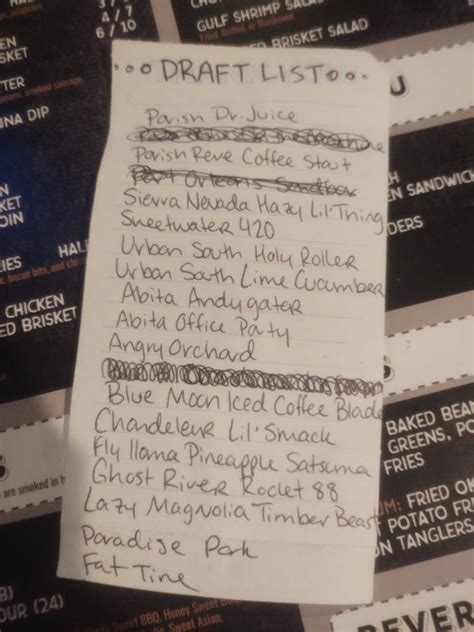 4 / 7
6 / 10
GULF SHRIMP SALAD
Fried, Grilled, or Blackened
BRISKET SALAD
DRAFT LIST
Parish Dr. Juice
Parish Reve Coffee Stout
Port Orleans Sandbar
Sierra Nevada Hazy Lil' Thing
Sweetwater 420
Urban South Holy Roller
Urban South Lime Cucumber
Abita Andygator
Abita Office Party
Angry Orchard
Blue Moon Iced Coffee Blonde
Chandeleur Lil' Smack
Fly llama Pineapple Satsuma
Ghost River Rocket 88
Lazy Magnolia Timber Beast
Paradise Park
Fat Tire
smoked sausage
NA DIP
KET
OIN
IES HAL
bacon bits, and
CHICKEN
ED BRISKET
EN SANDWICH
DERS
BAKED BEAN
GREENS, PO
FRIES
are smoked in h
UM: FRIED OK
POTATO FR
ON TANGLERS
OUR (24)
Sweet BBQ, Honey Sweet
Sweet Asian,
BEVER